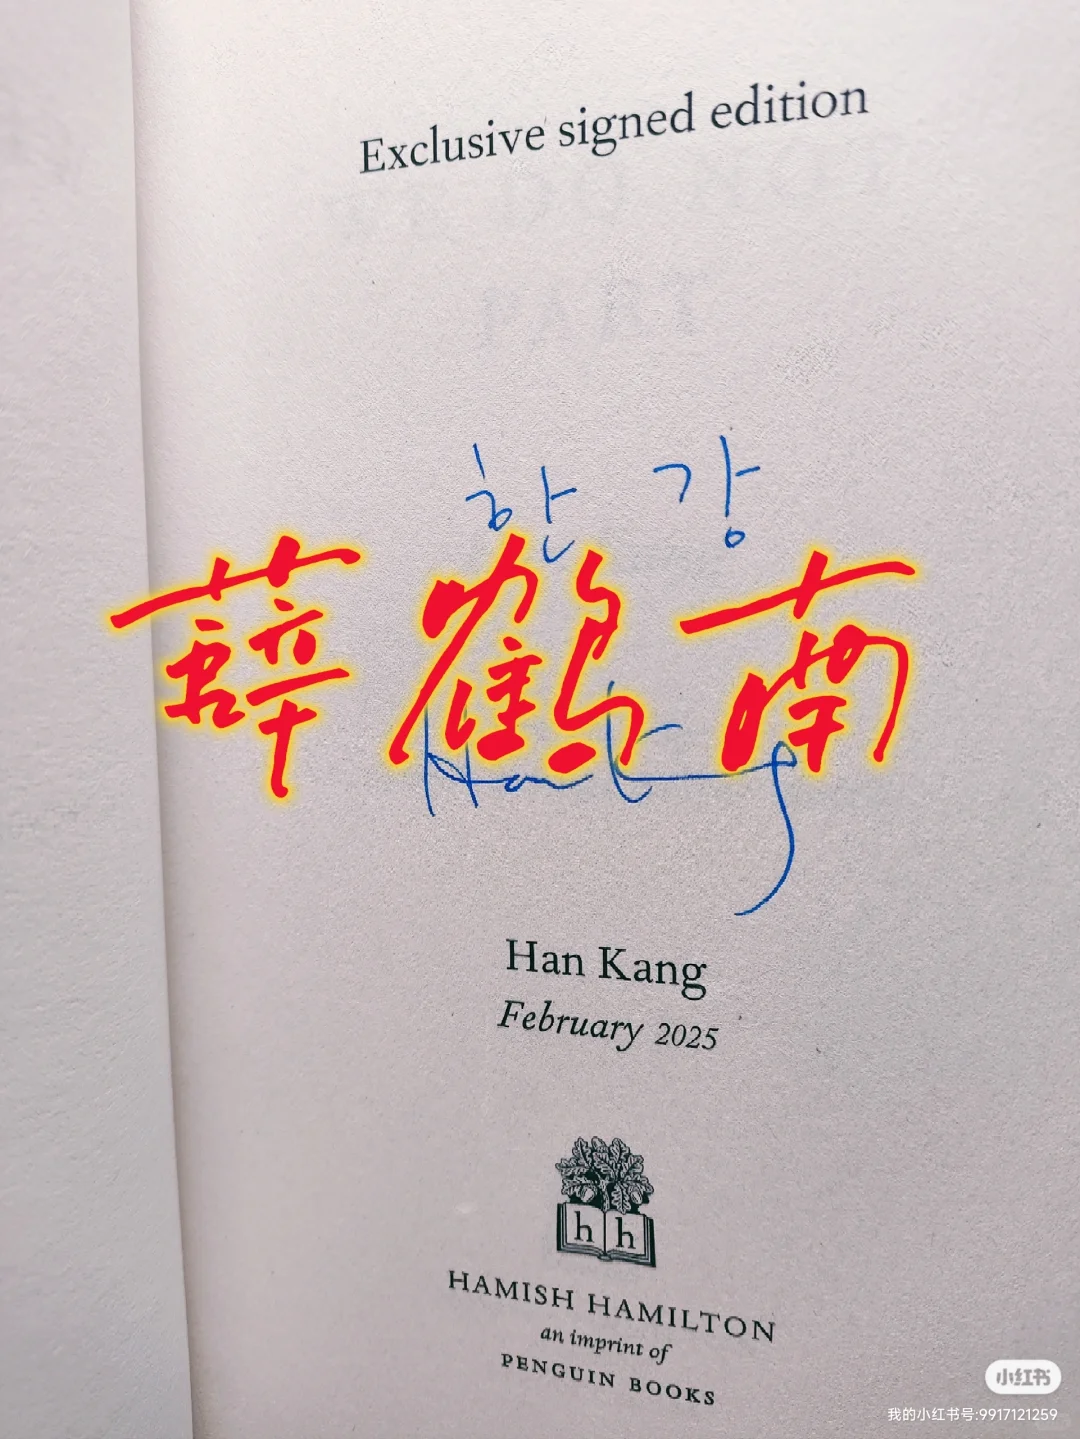 Exclusive signed edition
PART
한 강
薛鶴南
Han Kang
Han Kang
February 2025
h h
HAMISH HAMILTON
an imprint of
PENGUIN BOOKS
小红书
我的小红书号:9917121259